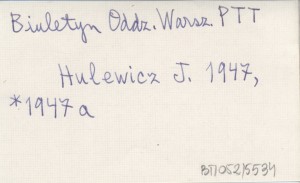 Biuletyn Oddz. Warsz. PTT
Hulewicz J. 1947,
*1947a
BTJ052/5534